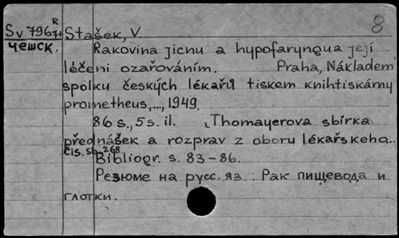 Sv 796 R/71 Stašek, V. 8
чешск. Rakovina jicnu a hypofaryngua její
léčeni ozařováním. Praha, Nákladem
spolku českých lékařů tiskem knihtiskárny
prometheus,..., 1949.
86 s., 5 s. il. „Thomayerova sbírka
přednášek a rozprav z oboru lékařskeho..
čis. sb. 268
Bibliogr. s. 83-86.
Резюме на русс. яз.: Рак пищевода и
глотки.